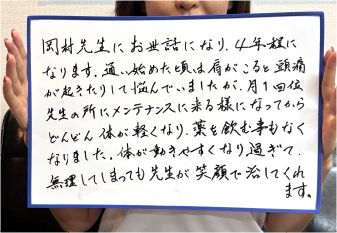 岡村先生にお世話になり、4年程に
なります。通い始めた頃は肩がこると頭痛
が起きたりして悩んでいましたが、月1回位
先生の所にメンテナンスに来る様になってから
どんどん体が軽くなり、薬を飲む事もなく
なりました。体が動きやすくなり過ぎて、
無理してしまっても先生が笑顔で治してくれ
ます。